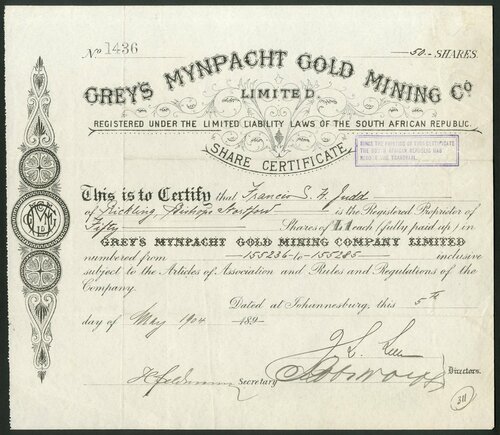 No 1436 —50.— SHARES.
GREY'S MYNPACHT GOLD MINING Co
LIMITED.
REGISTERED UNDER THE LIMITED LIABILITY LAWS OF THE SOUTH AFRICAN REPUBLIC.
SHARE CERTIFICATE.
SINCE THE PRINTING OF THIS CERTIFICATE
THE SOUTH AFRICAN REPUBLIC HAS
BECOME THE TRANSVAAL.
This is to Certify that Francis S. H. Judd
of Rickling, Bishops Stortford is the Registered Proprietor of
Fifty Shares of £1 each (fully paid up) in
GREY'S MYNPACHT GOLD MINING COMPANY LIMITED
numbered from 155236 to 155285 inclusive
subject to the Articles of Association and Rules and Regulations of the
Company.
Dated at Johannesburg, this 5th
day of May 1904 189-
Secretary
Directors.
311